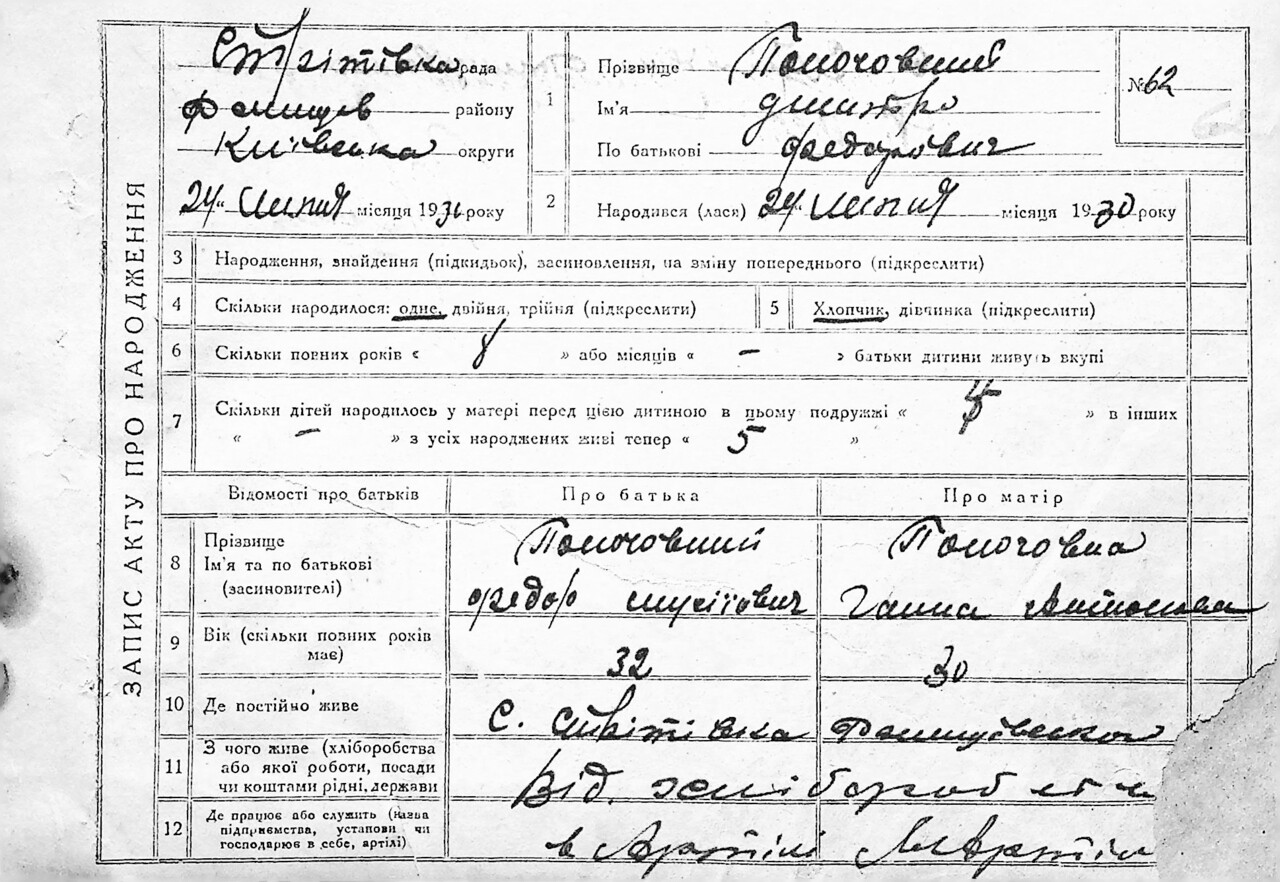 ЗАПИС АКТУ ПРО НАРОДЖЕННЯ
Стрітівка рада
району
Київська округи
24 " липня місяця 1930 року
1
Прізвище Помочовний
Ім'я Дмитро
По батькові Федорович
№ 62
2
Народився (лася) 24 " липня місяця 1930 року
3 Народження, знайдення (підкидьок), засиновлення, на зміну попереднього (підкреслити)
4 Скільки народилося: одне, двійня, трійня (підкреслити)
5 Хлопчик, дівчинка (підкреслити)
6 Скільки повних років « 8 » або місяців « — » батьки дитини живуть вкупі
7 Скільки дітей народилось у матері перед цією дитиною в цьому подружжі « » в інших
« — » з усіх народжених живі тепер « 5 »
Відомості про батьків
Про батька
Про матір
8
Прізвище
Ім'я та по батькові
(засиновителі)
Помочовний
Федор
Помочовна
Ганна Антонова
9 Вік (скільки повних років
має)
32
30
10 Де постійно живе
с. Стрітівка
11
З чого живе (хліборобства
або якої роботи, посади
чи коштами рідні, держави
Від.
12
Де працює або служить (назва
підприємства, установи чи
господарює в себе, артілі)
в Артілі